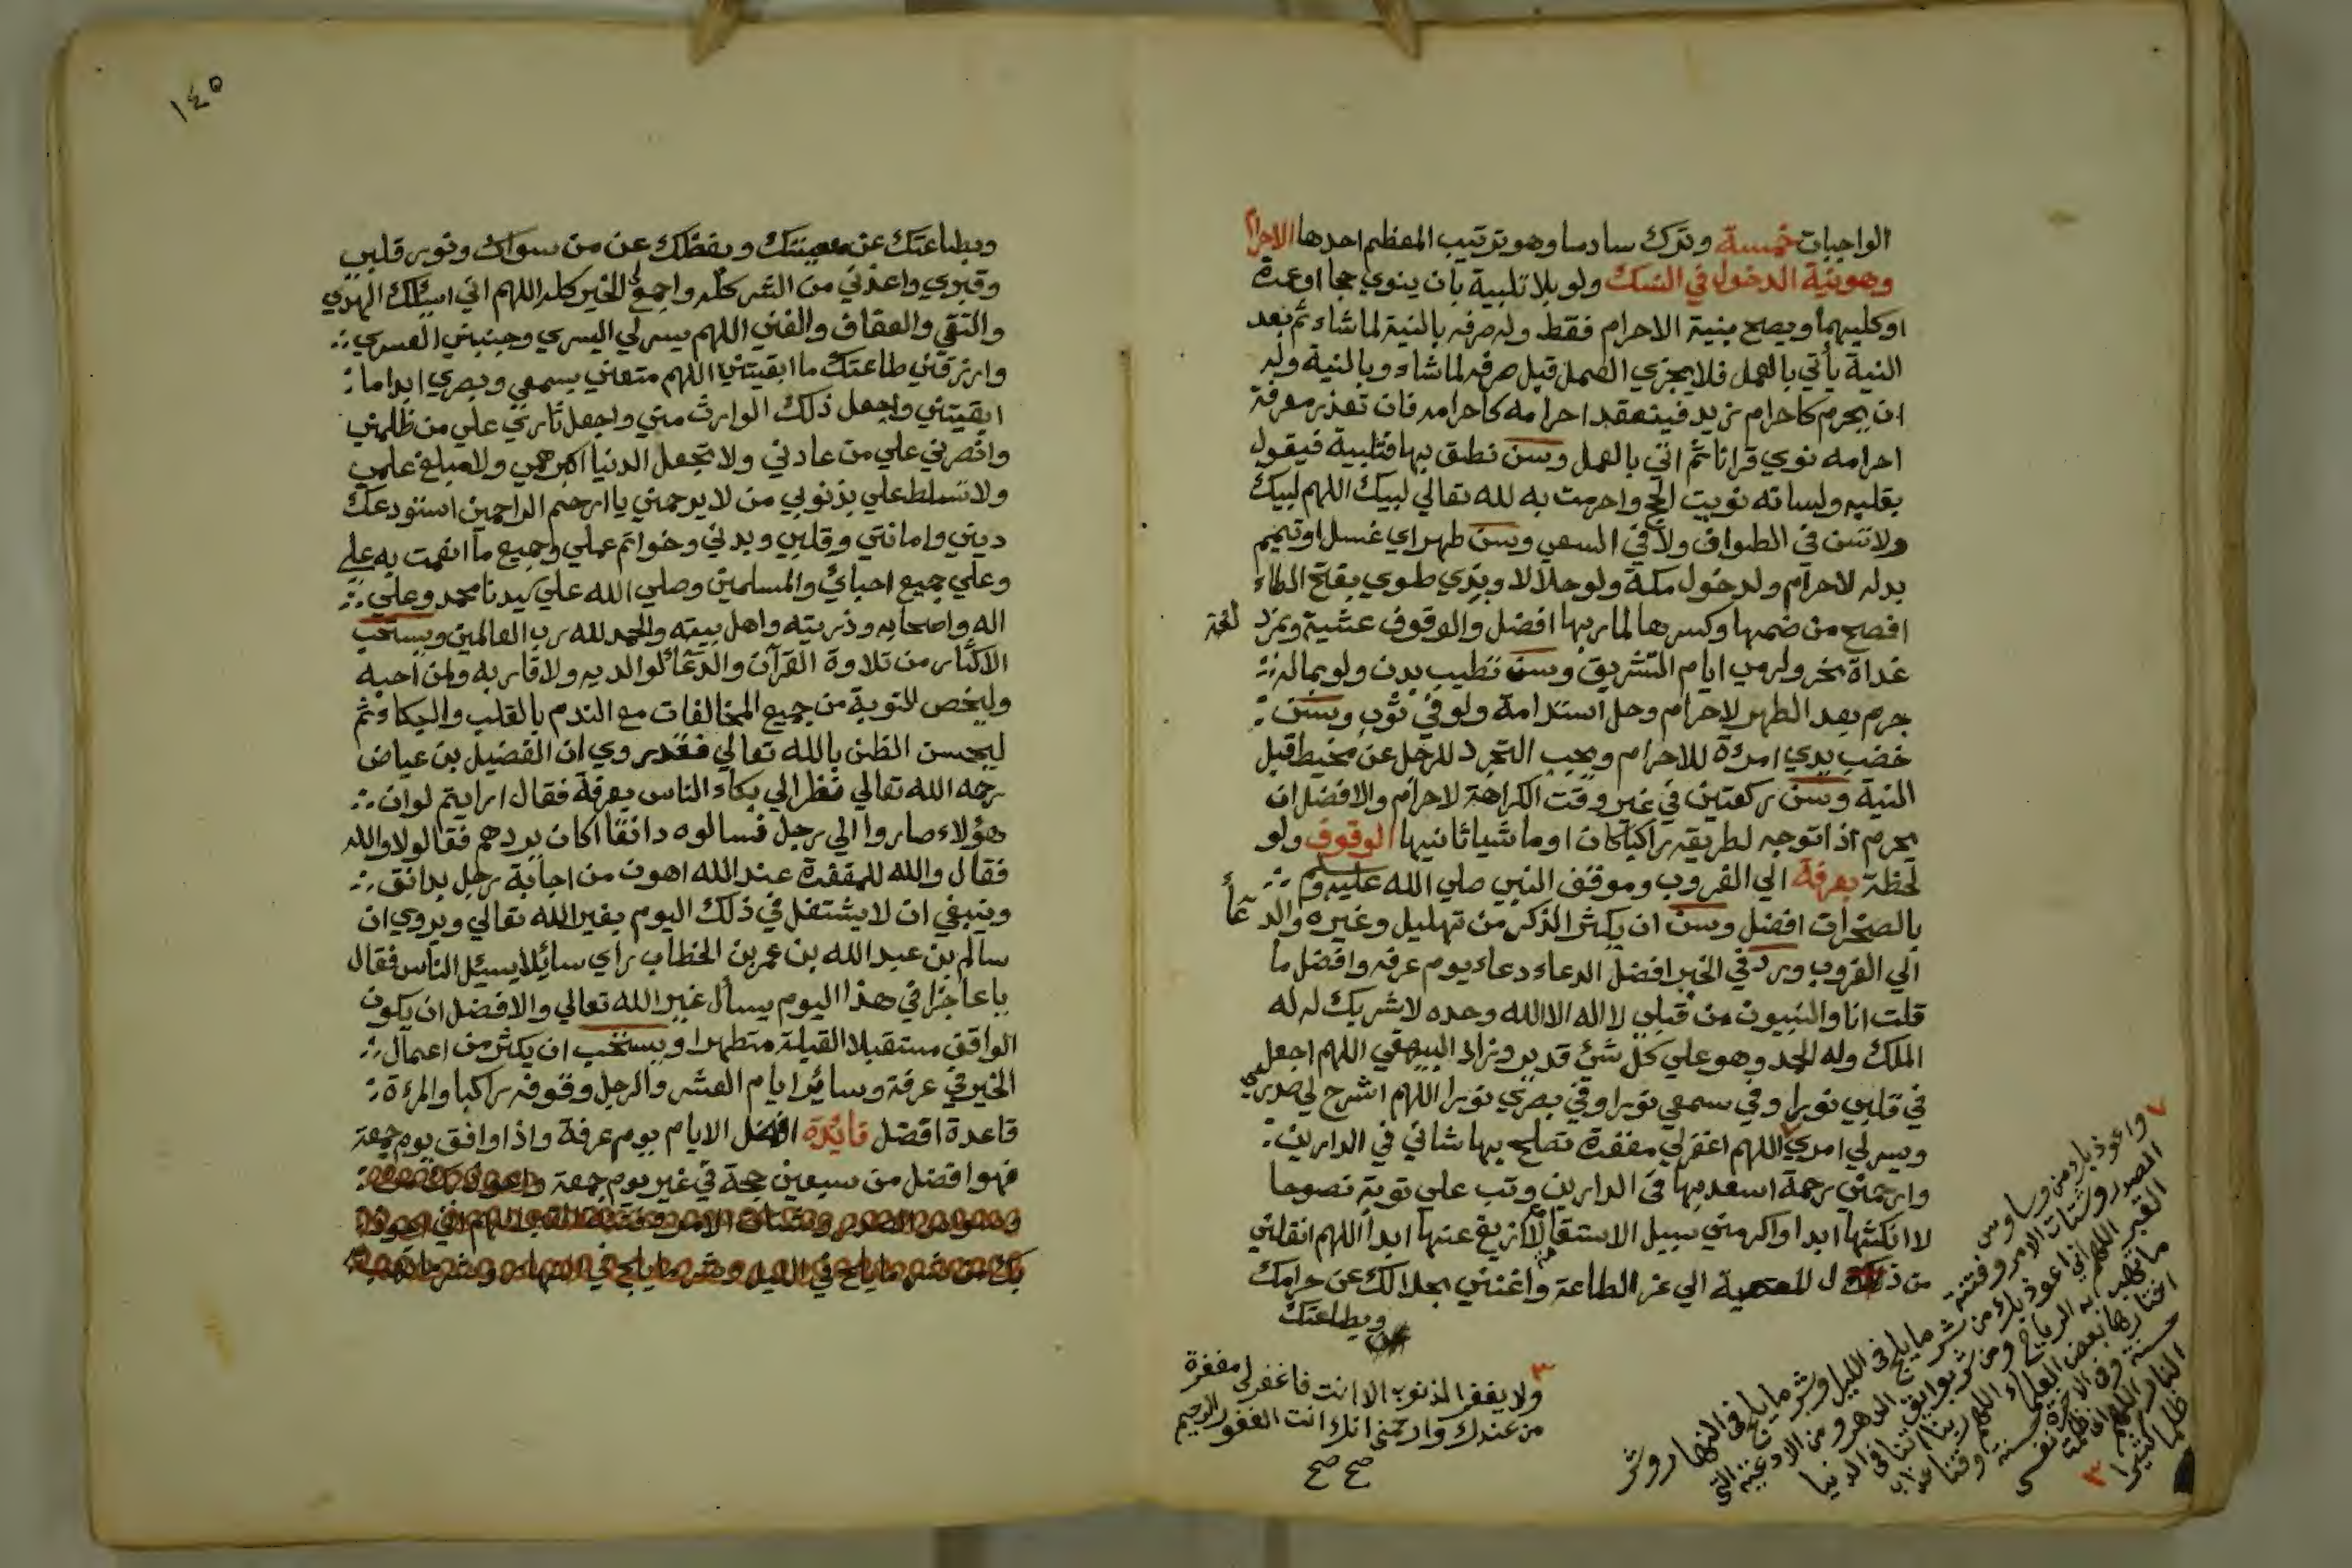 الواجبات خمسة وترك سادسا وهو ترتيب المعظم احدها الاحرام
وهو نية الدخول في النسك ولو بلا تلبية بان ينوي حجا او عمرة
او كليهما ويصح بنية الاحرام فقط وله صرفه بالنية لما شاء ثم بعد
النية يأتي بالعمل فلا يجزي العمل قبل صرفه لما شاء وبالنية وله
ان يحرم كاحرام زيد فينعقد احرامه كاحرامه فان تعذر معرفة
احرامه نوي قرانا ثم اتي بالعمل وسن نطق بها فتلبية فيقول
بقلبه ولسانه نويت الحج واحرمت به لله تعالي لبيك اللهم لبيك
ولا تسن في الطواف ولا في السعي وسن طهر اي غسل او تيمم
بدله لاحرام ولدخول مكة ولو حلالا وبذي طوي بفتح الطاء
افصح من ضمها وكسرها لمار بها افضل والوقوف عشية وبمزدلفة
غداة نحر ولرمي ايام التشريق وسن تطيب بدن ولو بماله
جرم بعد الطهر لاحرام وحل استدامة ولو في ثوب وسن
خضب يدي امرءة للاحرام ويجب التجرد للرجل عن مخيط قبل
النية وسن ركعتين في غير وقت الكراهة لاحرام والافضل ان
يحرم اذا توجه لطريقه راكبا كان او ماشيا ثانيها الوقوف ولو
لحظة بعرفة الي الغروب وموقف النبي صلي الله عليه وسلم
بالصخرات افضل وسن ان يكثر الذكر من تهليل وغيره والدعآء
الي الغروب ورد في الخبر افضل الدعاء دعاء يوم عرفه وافضل ما
قلت انا والنبيون من قبلي لا اله الا الله وحده لا شريك له له
الملك وله الحمد وهو علي كل شئ قدير وزاد البيهقي اللهم اجعل
في قلبي نورا وفي سمعي نورا وفي بصري نورا اللهم اشرح لي صدري
ويسر لي امري اللهم اغفر لي مغفرة تصلح بها شاني في الدارين
وارحمني رحمة اسعد بها في الدارين وتب علي توبة نصوحا
لا انكثها ابدا والزمني سبيل الاستقامة لا ازيغ عنها ابدا اللهم انقلني
من ذل المعصية الي عز الطاعة واغنني بحلالك عن حرامك
وبطاعتك
٧ واعوذ بك من وساوس
الصدر وشتات الامر وفتنة
القبر اللهم اني اعوذ بك من شر ما يلج في الليل وشر ما يلج في النهار وشر
ما تهب به الرياح ومن شر بوائق الدهر ومن الادعية التي
اختارها بعض العلماء اللهم ربنا اتنا في الدنيا
حسنة وفي الاخرة حسنة وقنا عذاب
النار اللهم اني ظلمت نفسي
ظلما كثيرا ٣
٣ ولا يغفر الذنوب الا انت فاغفر لي مغفرة
من عندك وارحمني انك انت الغفور الرحيم
صح صح
١٤٥
وبطاعتك عن معصيتك وبفضلك عن من سواك ونور قلبي
وقبري واعذني من الشر كله واجمع لي الخير كله اللهم اني اسئلك الهدي
والتقي والعفاف والغني اللهم يسر لي اليسري وجنبني العسري
وارزقني طاعتك ما ابقيتني اللهم متعني بسمعي وبصري ابدا ما
ابقيتني واجعل ذلك الوارث مني واجعل ثاري علي من ظلمني
وانصرني علي من عادني ولا تجعل الدنيا اكبر همي ولا مبلغ علمي
ولا تسلط علي بذنوبي من لا يرحمني يا ارحم الراحمين استودعك
ديني وامانتي وقلبي وبدني وخواتم عملي وجميع ما انعمت به علي
وعلي جميع احبائي والمسلمين وصلي الله علي سيدنا محمد وعلي
اله واصحابه وذريته واهل بيته والحمد لله رب العالمين ويستحب
الاكثار من تلاوة القرآن والدعآء لوالديه ولاقاربه ولمن احبه
وليخص للتوبة من جميع المخالفات مع الندم بالقلب والبكاء ثم
ليحسن الظن بالله تعالي فقد روي ان الفضيل بن عياض
رحمه الله تعالي نظر الي بكاء الناس بعرفة فقال ارايتم لو ان
هؤلاء صاروا الي رجل فسالوه دانقا اكان يردهم فقالو لا والله
فقال والله للمغفرة عند الله اهون من اجابة رجل بدانق
وينبغي ان لا يشتغل في ذلك اليوم بغير الله تعالي ويروي ان
سالم بن عبد الله بن عمر بن الخطاب راي سائلا يسئل الناس فقال
يا عاجزا في هذا اليوم يسأل غير الله تعالي والافضل ان يكون
الواقف مستقبلا القبلة متطهرا ويستحب ان يكثر من اعمال
الخير في عرفة وسائر ايام العشر والرجل وقوفه راكبا والمرءة
قاعدة افضل فائدة افضل الايام يوم عرفة واذا وافق يوم جمعة
فهو افضل من سبعين حجة في غير يوم جمعة واعوذ بك من
وساوس الصدر وشتات الامر وفتنة القبر اللهم اني اعوذ
بك من شر ما يلج في الليل وشر ما يلج في النهار وشر ما تهب به